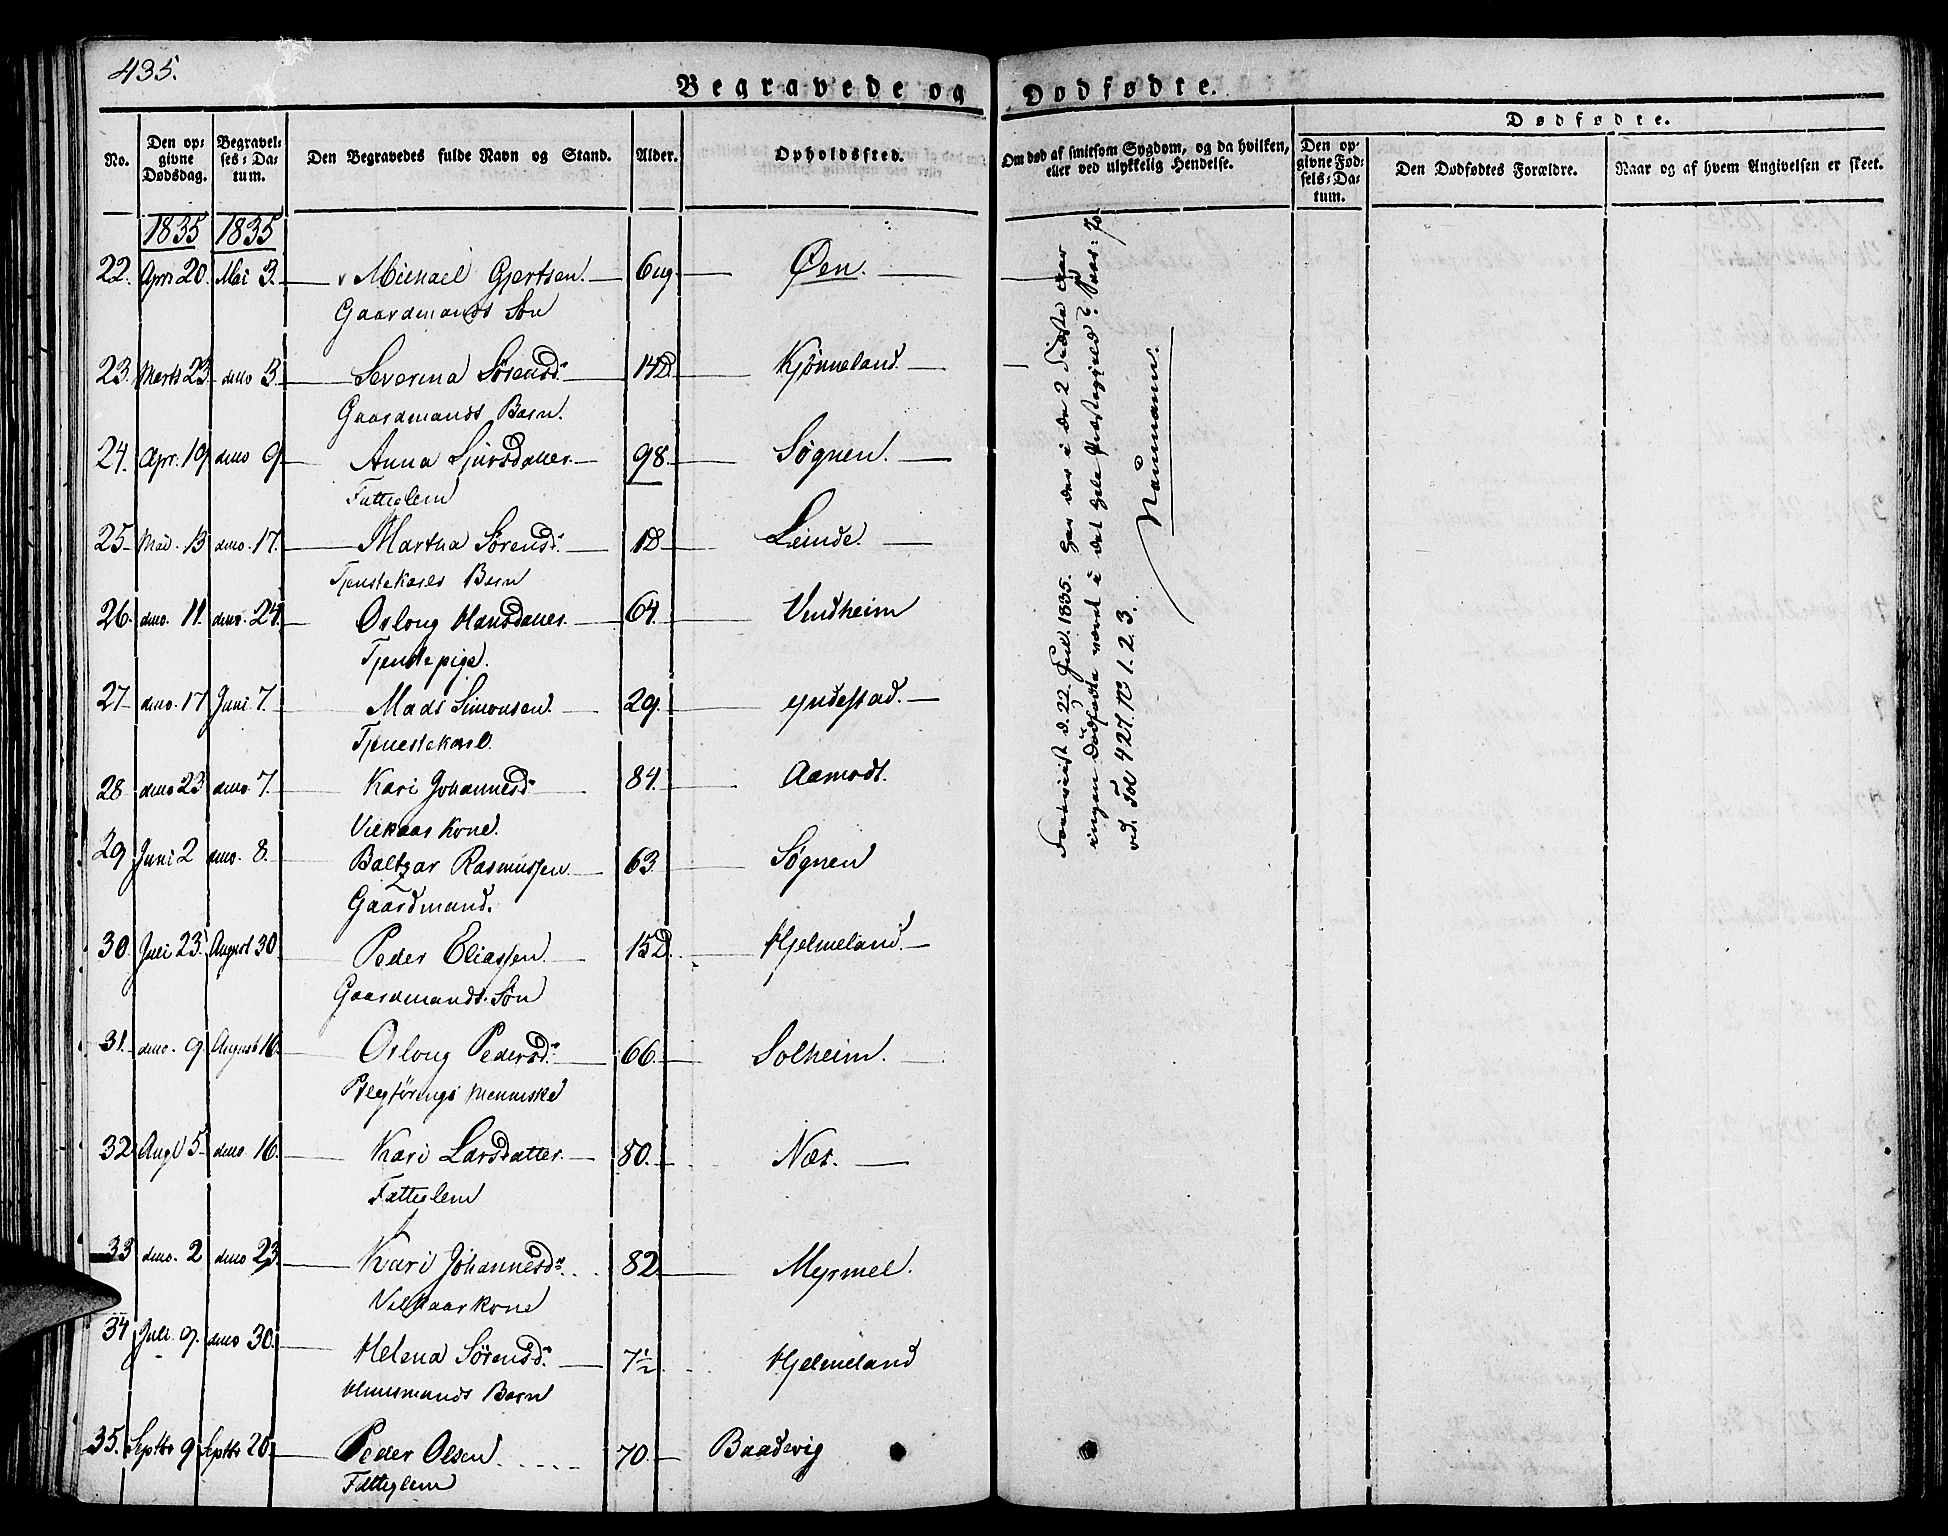 435.
Begravede og Dødfødte.
No.
Den opgivne Dødsdag.
Begravelses-Datum.
Den Begravedes fulde Navn og Stand.
Alder.
Opholdssted.
Om død af smitsom Sygdom, og da hvilken, eller ved ulykkelig Hendelse.
Dødfødte.
Den opgivne Fødsels-Datum.
Den Dødfødtes Forældre.
Naar og af hvem Angivelsen er skeet.
1835 1835
22. Apr. 20. Mai 3. Michael Gjertsen. 6 ug. Øen.
Gaardmands Søn
23. Marts 23. dmo 3. Severina Sørensd. 14 D. Kjønneland.
Gaardmands Barn.
24. Apr. 19 dmo 9. Anna Sjursdatter 98. Søgnen.
Fattiglem
25. Mai. 13 dmo. 17. Martha Sørensd. 1 D. Leinde.
Tjenstekarls Barn
26. dmo. 11. dmo. 24. Osloug Hansdatter. 64. Vindheim
Tjenstepige.
27. dmo. 17 Juni 7. Mads Simonsen. 29. Yndestad.
Tjenestekarl.
28 dmo 23 dmo. 7. Kari Johannesd. 84. Aamodt.
Vilkaarkone.
29 Juni 2 dmo. 8. Baltzar Rasmussen 63. Søgnen
Gaardmand.
30. Juli 23. August 30. Peder Eliassen. 15 D. Hjelmeland.
Gaardmands Søn
31. dmo. 9. August 16. Osloug Pedersd. 66. Solheim.
Menneske
32. Augt 5. dmo. 16. Kari Larsdatter. 80. Næs.
Fattiglem
33 dmo. 2 dmo 23. Kari Johannesd. 82. Myrmel.
Vilkaarkone
34 Juli 9. dmo 30. Helena Sørensd. 7½ Hjelmeland
Huusmands Barn
35. Septbr 9 Septbr 20. Peder Olsen 70. Baadevig
Fattiglem
d. 22. Jul. 1835. Har der i de 2 sidste Aar
ingen Dødfødte været i det hele Præstegjeld?
vid. Fol 427. No 1. 2. 3.
Naumann.